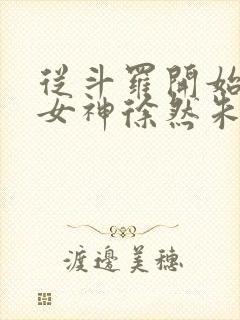 從斗羅開始
女神徐然朱
渡邊美穗